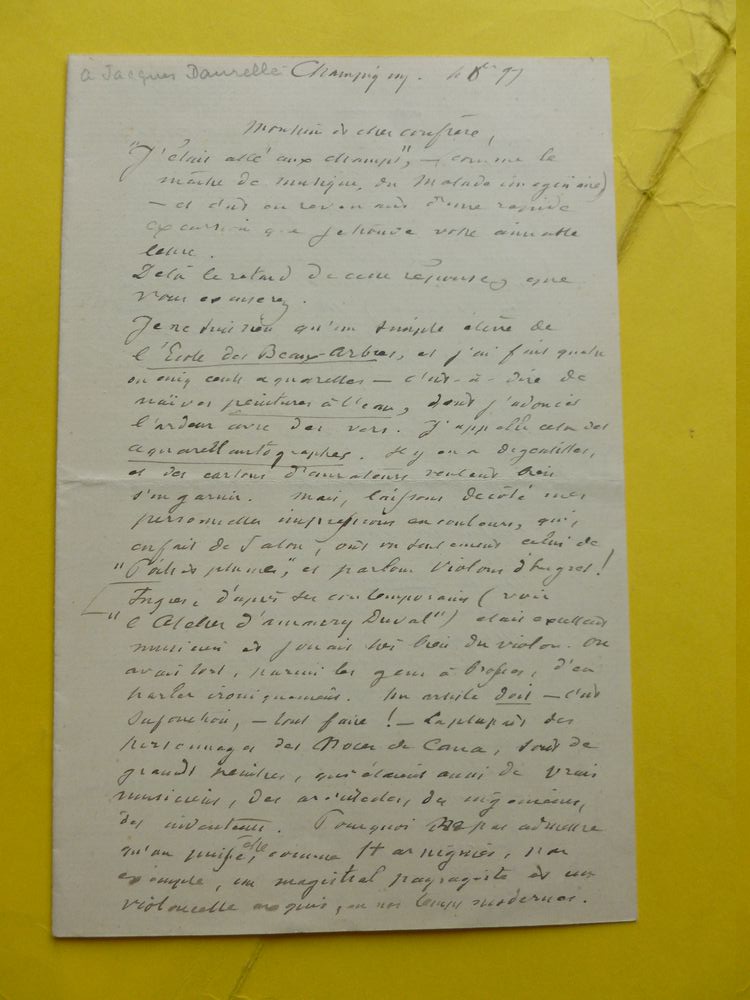 a Jacques Daurelle Champigny. 4 Xbre 97
Monsieur & cher confrère,
"J'étais allé aux champs", – comme le
maître de musique, du Malade imaginaire)
– et c'est en revenant d'une rapide
excursion que je trouve votre aimable
lettre.
De là le retard de cette réponse, que
vous excuserez.
Je ne suis rien qu'un simple élève de
l'École des Beaux-Arbres, et j'ai fait quatre
ou cinq cents aquarelles – c'est-à-dire de
naïves peintures à l'eau, dont j'adoucis
l'ardeur avec des vers. J'appelle cela des
aquarellautographes. Il y en a de gentilles,
et des cartons d'amateurs veulent bien
s'en garnir. Mais, laissons de côté mes
personnelles impressions en couleurs, qui,
en fait de Salon, ont vu seulement celui de
"Poil et plume", et parlons Violons d'Ingres!
Ingres, d'après ses contemporains (voir
"l'Atelier d'Amaury Duval") était excellent
musicien et jouait très bien du violon. On
avait tort, parmi les gens à Broses, d'en
parler ironiquement. Un artiste doit – c'est
sa fonction, – tout faire! – La plupart des
personnages des Noces de Cana, sont de
grands peintres, qui étaient aussi de vrais
musiciens, des architectes, des ingénieurs,
des inventeurs. Pourquoi ne pas admettre
qu'on puisse être, comme Harpignies, par
exemple, un magistral paysagiste et un
violoncelle exquis, en nos temps modernes.